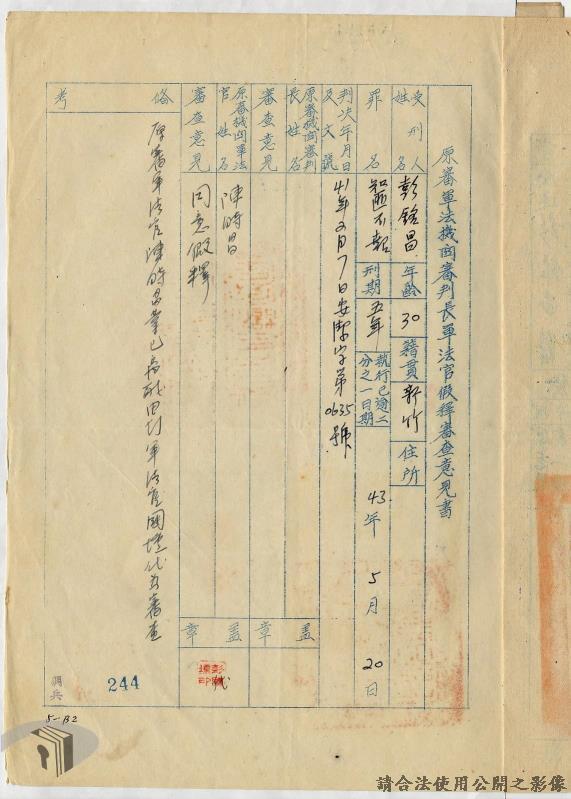 原審軍法機關審判長軍法官假釋審查意見書
受刑人姓名 彭銘昌 年齡 30 籍貫 新竹 住所
罪名 知匪不報 刑期 五年 執行已逾二分之一日期 43年5月20日
判決年月日及文號 41年 月7日安潔字第0635號
原審機關審判長姓名
審查意見 蓋章
原審機關軍法官姓名 陳時昌
審查意見 同意假釋 蓋章
備考
原審軍法官陳時昌業已 軍法官國 代為審查
244
5-B2
請合法使用公開之影像